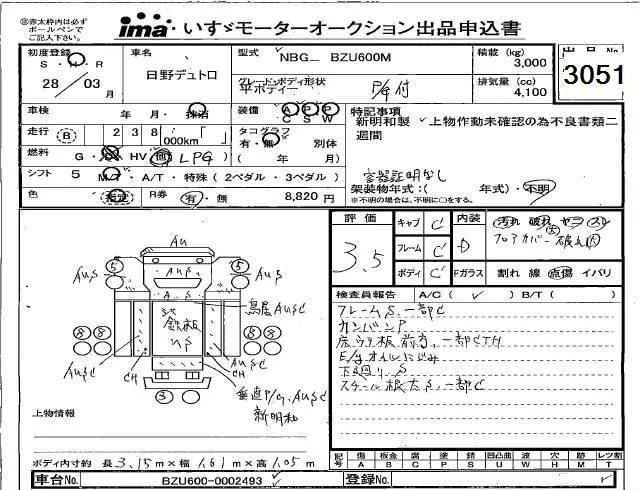 ㊟赤太枠内は必ず
ボールペンで
ご記入下さい。
ima いすゞモーターオークション出品申込書
初度登録
S・H・R
28 / 03 月
車名
日野デュトロ
型式
NBG_ BZU600M
グレード・ボディ形状
平ボディー
P/G付
積載 (kg)
3,000
排気量 (cc)
4,100
出品No
3051
車検 年 月・抹消
装備 A P P
C S W
特記事項
新明和製 上物作動未確認の為不良書類二
週間
走行 B 2 3 8 000km
タコグラフ
有・無 別体
( 年 月)
燃料 G HV 他 LPG
容器証明なし
シフト 5 M/T・A/T・特殊(2ペダル・3ペダル)
架装物年式:( 年式)・不明
※不明の場合は、不明に○をする。
色 指定 R券 有・無 8,820 円
評価
3.5
キャブ C'
フレーム C'
ボディ C'
内装
D
Fガラス
汚れ 破れ ヤコ スレ
フロアカバー破れ大
割れ 線 点傷 イバリ
検査員報告 A/C( ✓ ) B/T( )
フレームS、一部C
カンバンP
E/gオイルにじみ
下廻り S
スチール根太S、一部C
Au
S
AuS
AuS
S
AuS
A S
鉄板
鳥居AuSC
8 8
8 8
AuSC
CH
CH
垂直P/G、AuSC
新明和
3
上物情報
ボディ内寸約 長 3.15 m×幅 1.61 m×高 1.05 m
記号
傷 板金 腐 塗 錆 凹凸曲 波 穴 跡 レツ割
A B C P S U W H M T
車台No. BZU600-0002493
登録No.